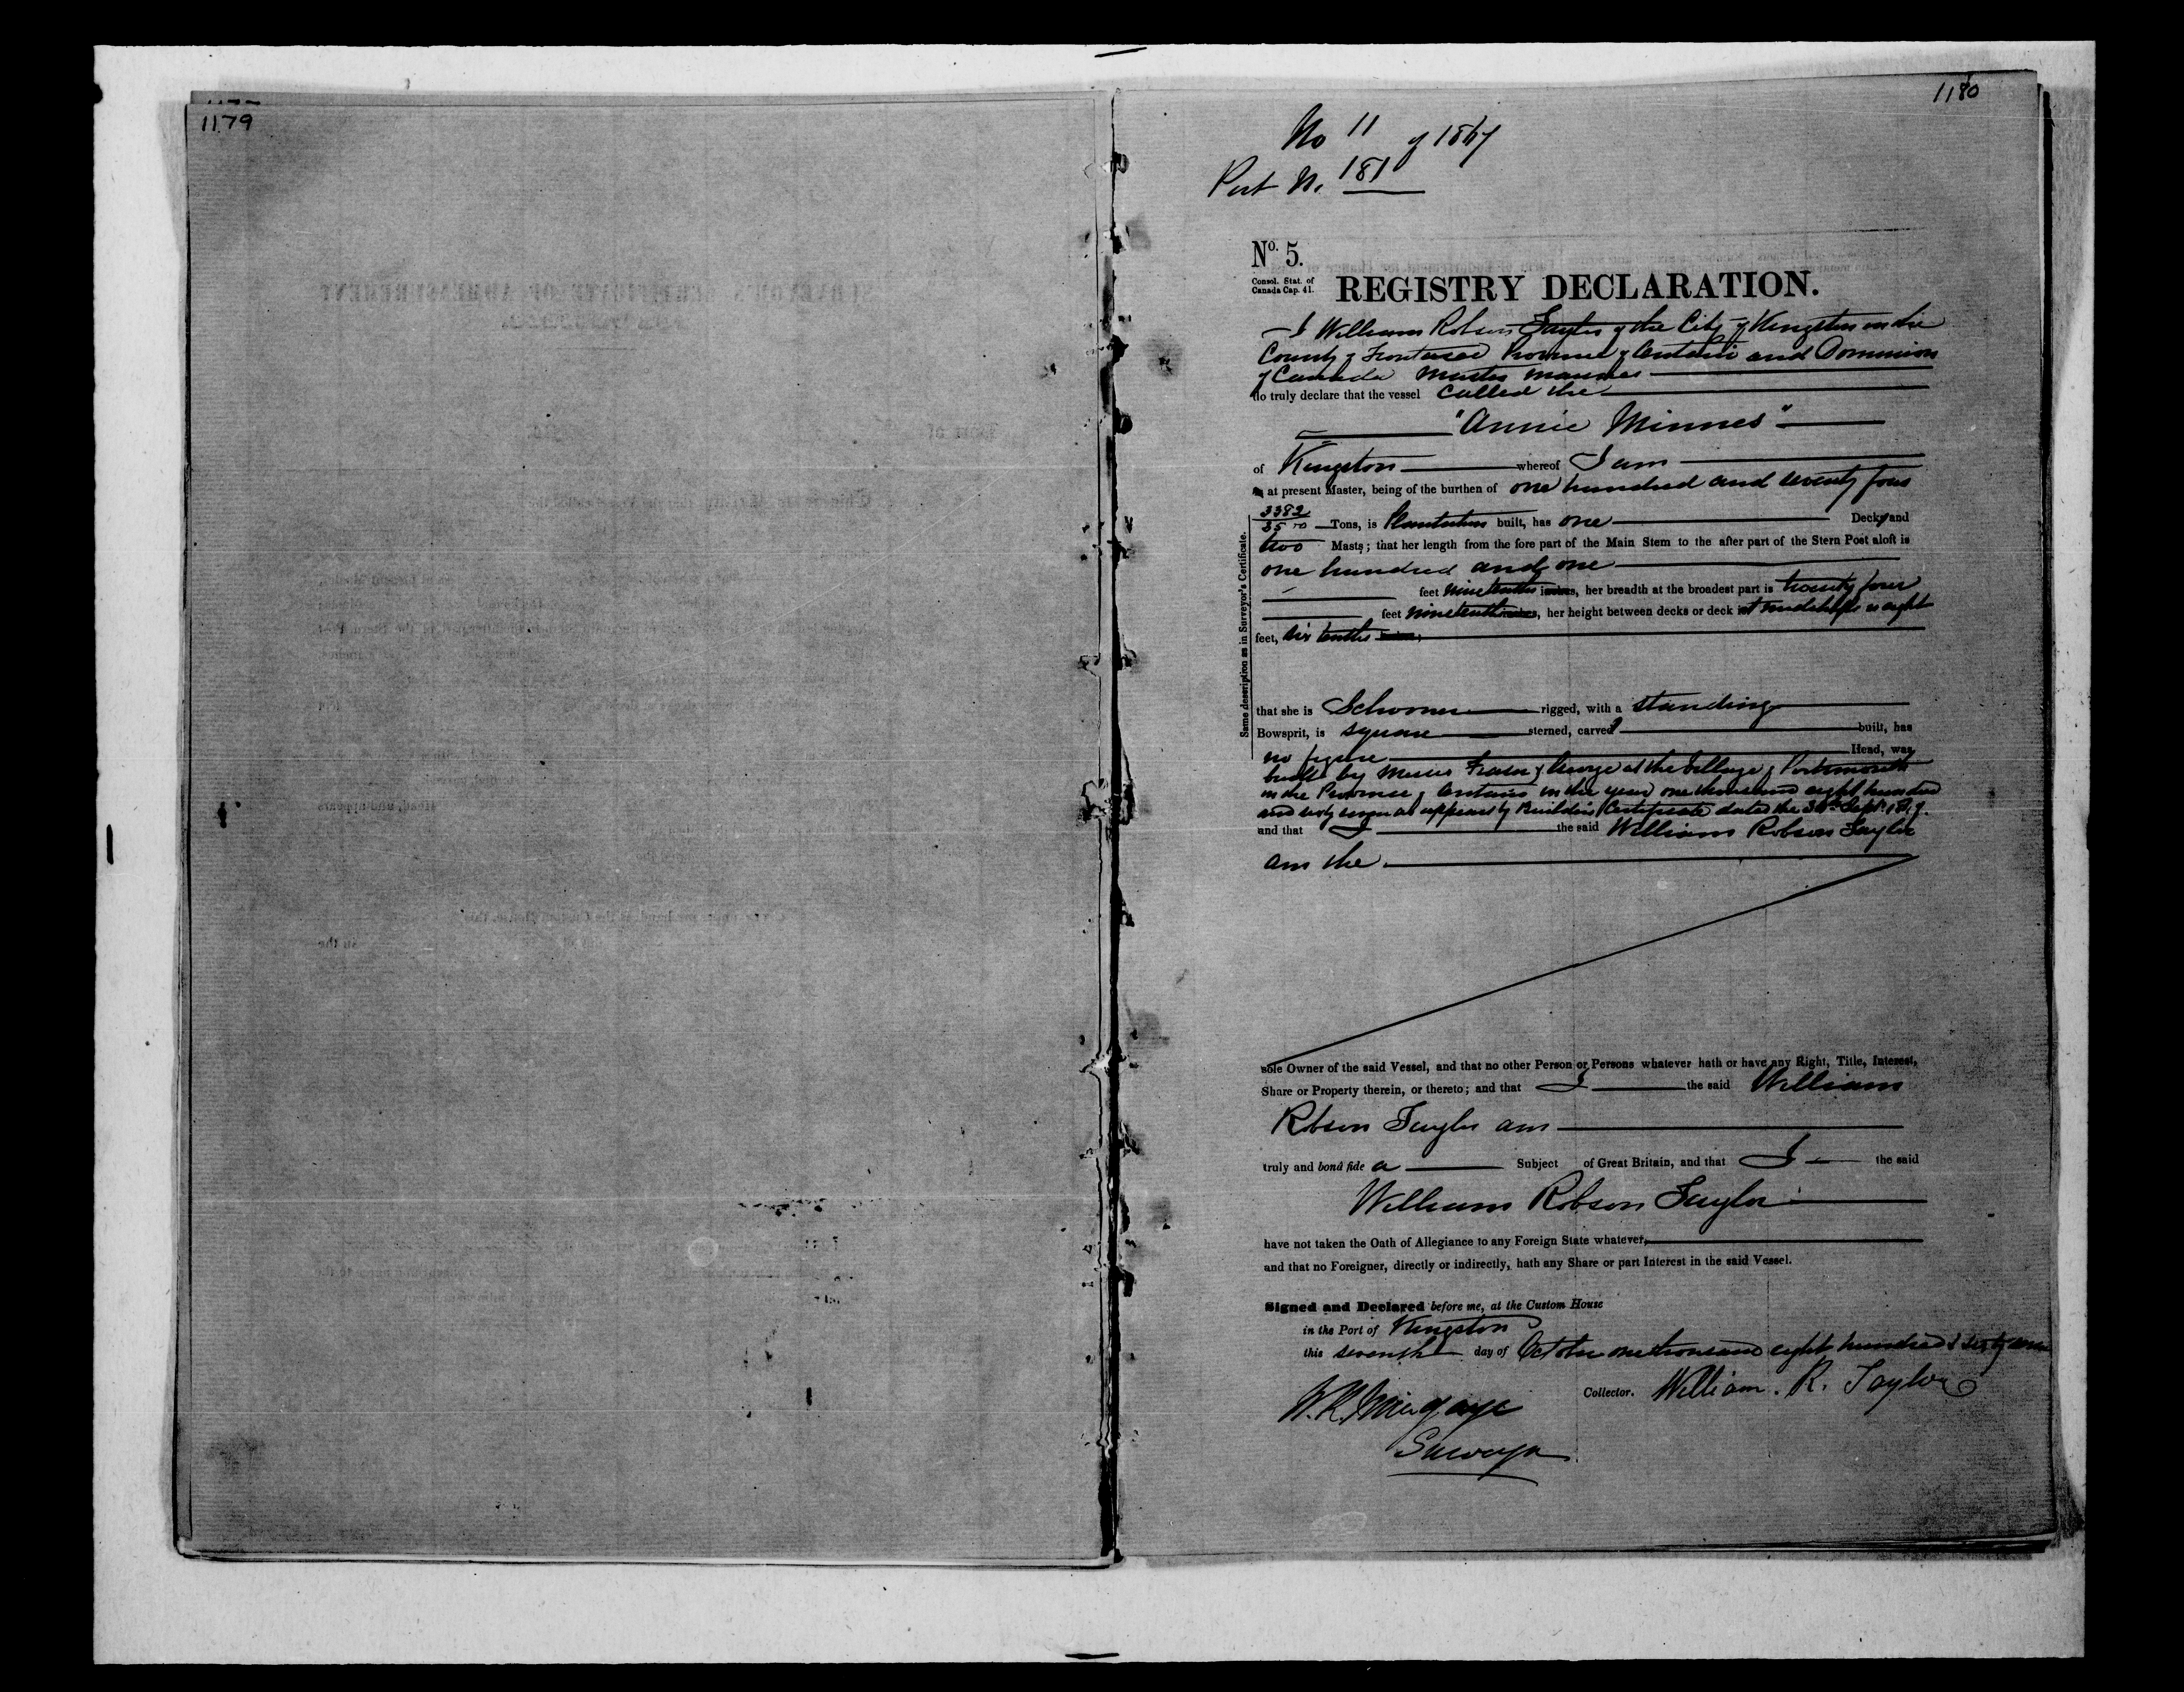 1179
1180
No 11 of 1867
Port No. 181
No. 5.
Consol. Stat. of
Canada Cap. 41.
REGISTRY DECLARATION.
I William Robson Taylor of the City of Kingston in the
County of Frontenac Province of Ontario and Dominion
of Canada Master Mariner
do truly declare that the vessel called the
"Annie Minnes"
of Kingston whereof I am
at present Master, being of the burthen of one hundred and seventy four
3382
3500 Tons, is Plantation built, has one Deck and
two Masts; that her length from the fore part of the Main Stem to the after part of the Stern Post aloft is
one hundred and one
feet nine tenths inches, her breadth at the broadest part is twenty four
feet nine tenths inches, her height between decks or deck at midships is eight
feet, six tenths
Same description as in Surveyor's Certificate.
that she is Schooner rigged, with a standing
Bowsprit, is square sterned, carvel built, has
no figure Head, was
built by Messrs Fraser & George at the Village of Portsmouth
in the Province of Ontario in the year one thousand eight hundred
and sixty seven as appears by Builders Certificate dated the 30th Sept.
and that I the said William Robson Taylor
am the
sole Owner of the said Vessel, and that no other Person or Persons whatever hath or have any Right, Title, Interest,
Share or Property therein, or thereto; and that I the said William
Robson Taylor am
truly and bonâ fide a Subject of Great Britain, and that I the said
William Robson Taylor
have not taken the Oath of Allegiance to any Foreign State whatever,
and that no Foreigner, directly or indirectly, hath any Share or part Interest in the said Vessel.
Signed and Declared before me, at the Custom House
in the Port of Kingston
this seventh day of October one thousand eight hundred & sixty seven
Collector. William. R. Taylor
W. R. Mingaye
Surveyor